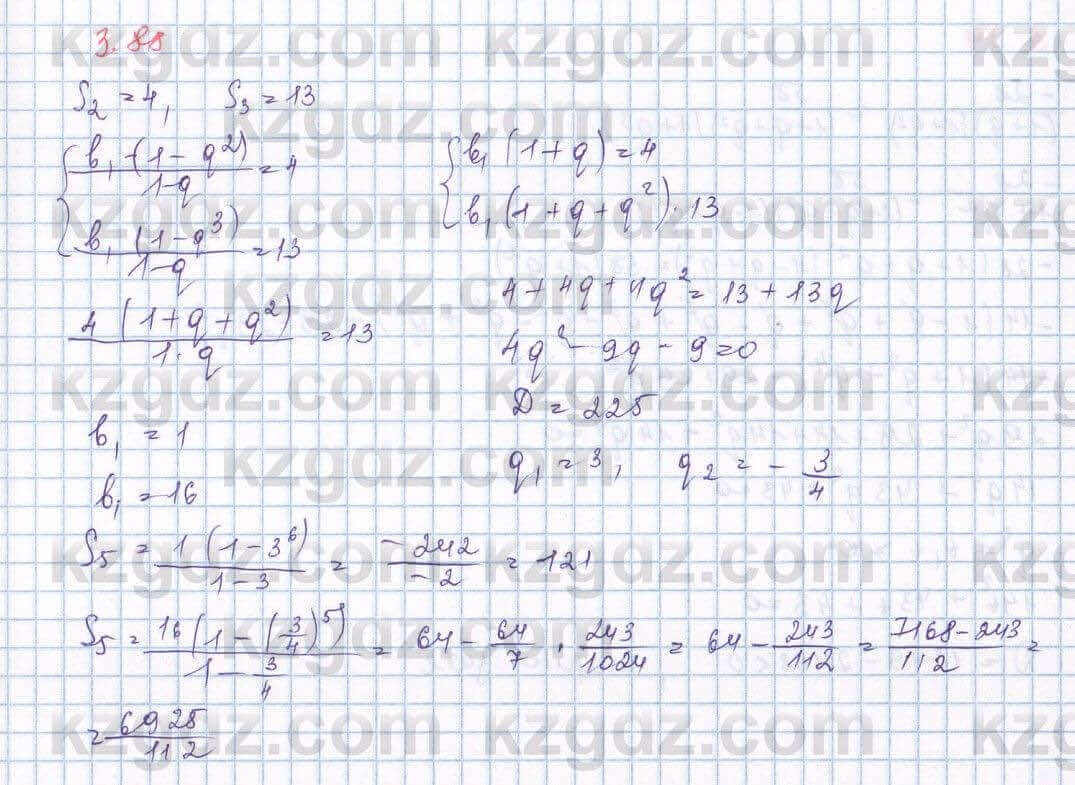 3.88
S₂ = 4, S₃ = 13
{ b₁ · (1 - q²) / (1-q) = 4
{ b₁ (1-q³) / (1-q) = 13
4 (1+q+q²) / (1 · q) = 13
b₁ = 1
b₁ = 16
{ b₁ (1+q) = 4
{ b₁ (1+q+q²) · 13
4 + 4q + 4q² = 13 + 13q
4q² - 9q - 9 = 0
D = 225
q₁ = 3, q₂ = - 3/4
S₅ = 1 (1 - 3⁶) / (1-3) = -242 / -2 = 121
S₅ = 16 (1 - (3/4)⁵) / (1 - 3/4) = 64 - 64/7 · 243/1024 = 64 - 243/112 = (7168 - 243)/112 =
= 6925/112
kzgdz.com